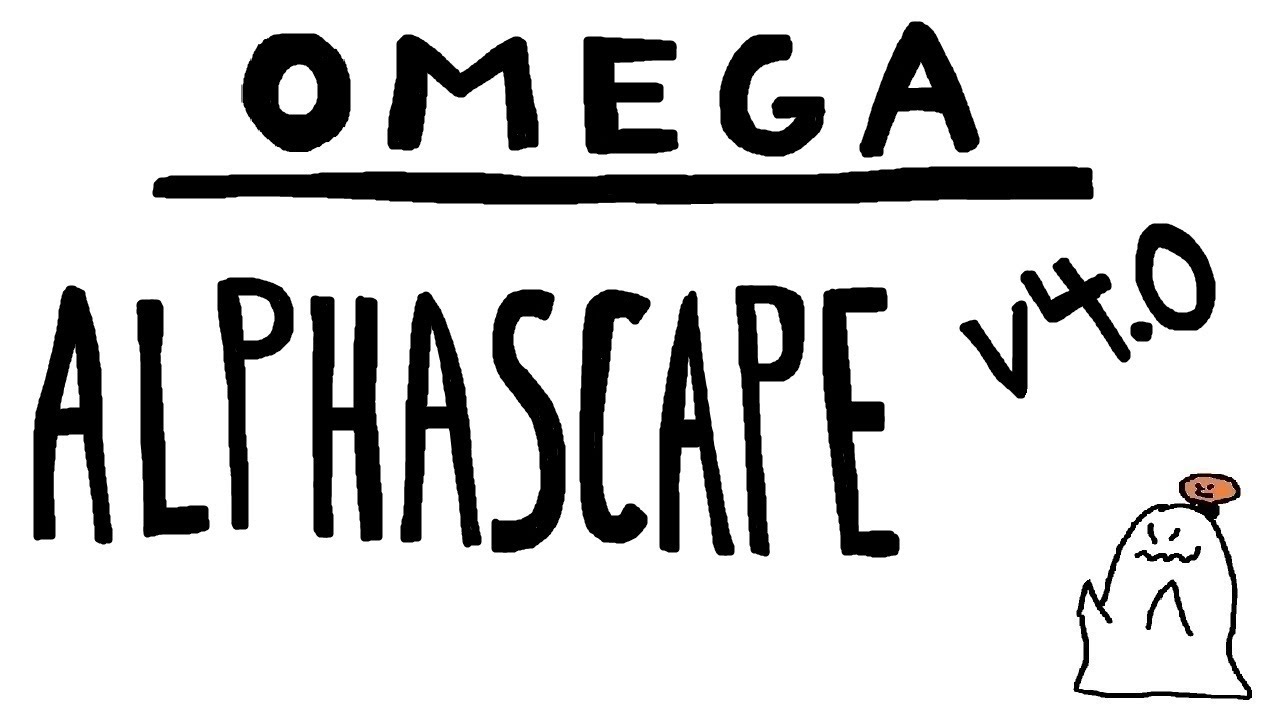 OMEGA
ALPHASCAPE
v4.0